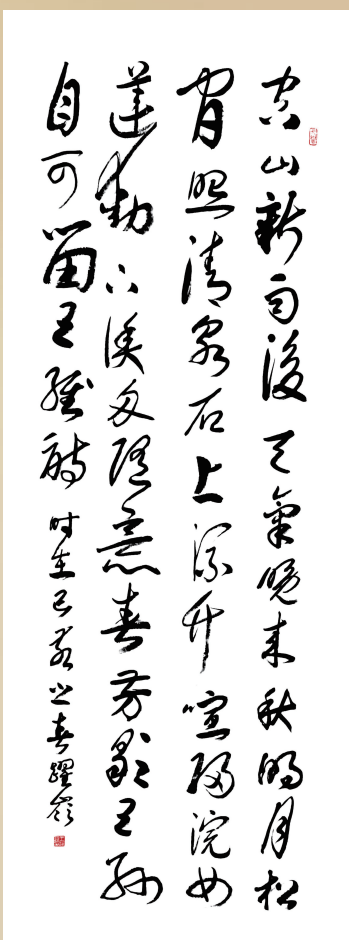 空山新雨後天氣晚來秋明月松
間照清泉石上流竹喧歸浣女
蓮動下漁舟隨意春芳歇王孫
自可留王維詩时在己亥之春